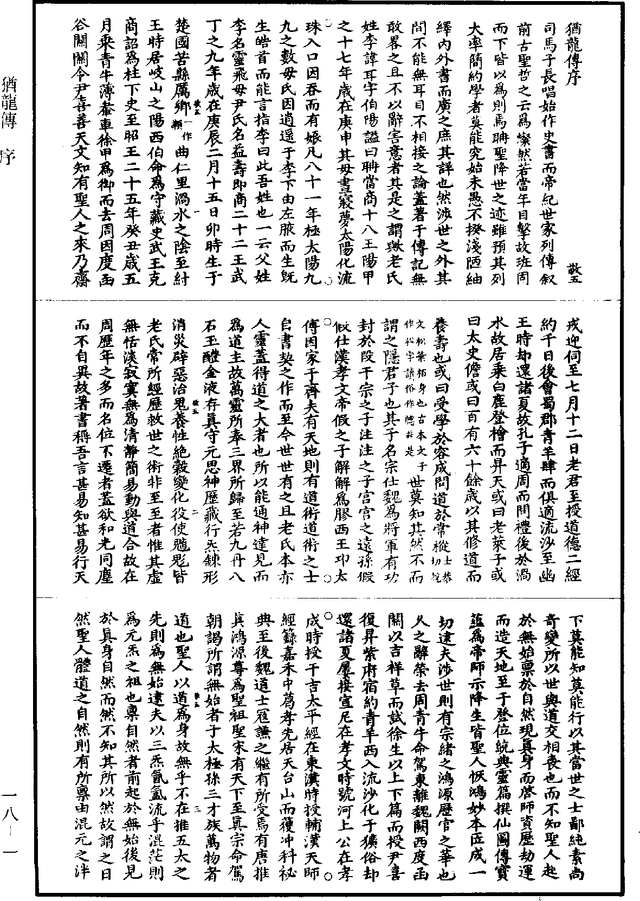 猶龍傳序　敬五
司馬子長唱始作史書而帝紀世家列傳叙
前古聖哲之云為粲然若當年目擊故班固
而下皆以為則焉聃聖降世之迹雖預其列
大率簡約學者莫能究始末愚不揆淺陋紬
繹内外書而廣之庶其詳也然涉世之外其
間不能無耳目不相接之論蓋著于傳記無
敢略之且不以辭害意者其是之謂歟老氏
姓李諱耳字伯陽謚曰聃當商十八王陽甲
之十七年歲在庚申其母晝寢夢太陽化流
珠入口因吞而有娠凡八十一年極太陽九
九之數母氏因逍遥于李下由左腋而生既
生皓首而能言指李曰此吾姓也一云父姓
李名靈飛母尹氏名益壽即商二十二王武
丁之九年歲在庚辰二月十五日卯時生于
楚國苦縣厲鄉一作賴曲仁里渦水之陰至紂
王時居岐山之陽西伯命為守藏史武王克
商詔為柱下史至昭王二十五年癸丑歲五
月乘青牛薄軬車徐甲為御而去周因度函
谷關關令尹喜善天文知有聖人之來乃齋
戒迎伺至七月十二日老君至授道德二經
約千日後會蜀郡青羊肆而俱適流沙至幽
王時却還諸夏故孔子適周而問禮後於渦
水故居乘白鹿登檜而昇天或曰老萊子或
曰太史儋或曰百有六十餘歲以其修道而
養壽也或曰受學於容成問道於常樅士恭切說
文松葉柏身也古本文子作松字誤俗作是世莫知其然不而
謂之隱君子也其子名宗仕魏為將軍有功
封於段干宗之子注注之子宫宫之遠孫假
假仕漢孝文帝假之子解解為膠西王卬太
傅因家于齊夫有天地則有道術道術之士
自書契之作而至今世世有之且老氏本亦
人靈蓋得道之大者也所以能通神達見而
為道主故萬靈所奉三界所歸至若九丹八
石玉醴金液存真守元思神歷藏行炁鍊形
消災辟惡治鬼養性絶穀變化役使魑魅皆
老氏常所經歷救世之術非至至者惟其虚
無恬淡寂寞無為清靜簡易動與道合故在
周歷年之多而名位不遷者蓋欲和光同塵
而不自異故著書稱吾言甚易知甚易行天
下莫能知莫能行以其當世之士鄙純素尚
奇變所以世與道交相喪也而不知聖人起
於無始禀於自然現真身而啓師資歷劫運
而造天地至于登位統典靈篇撰仙圖傳寶
為帝師示降生皆聖人恢鴻妙本匠成一
切逮夫涉世則有宗緒之鴻源歷官之華也
久之辭榮去周青牛命駕東離魏闕西度函
關以吉祥草而試徐生以上下篇而授尹喜
復昇紫府宿約青羊西入流沙化于獷俗却
還諸夏屢接宣尼在孝文時號河上公在孝
成時授干吉太平經在東漢時授輔漢天師
經籙嘉禾中葛孝先居天台山而獲冲科祕
典至後魏道士寇謙之繼有所受焉有唐推
其鴻源尊為聖祖聖宋有天下至真宗命駕
朝謁所謂無始者子太極孫三才族萬物者
道也聖人以道為身故無乎不在推五太之
先則為無始逮夫以三炁氤氲流乎混茫則
為元炁之祖也禀自然者前起於無始後見
於真身自然而然不知其所以然故謂之自
然聖人體道之自然則有所禀由混元之泮
猶龍傳　序
一八－一